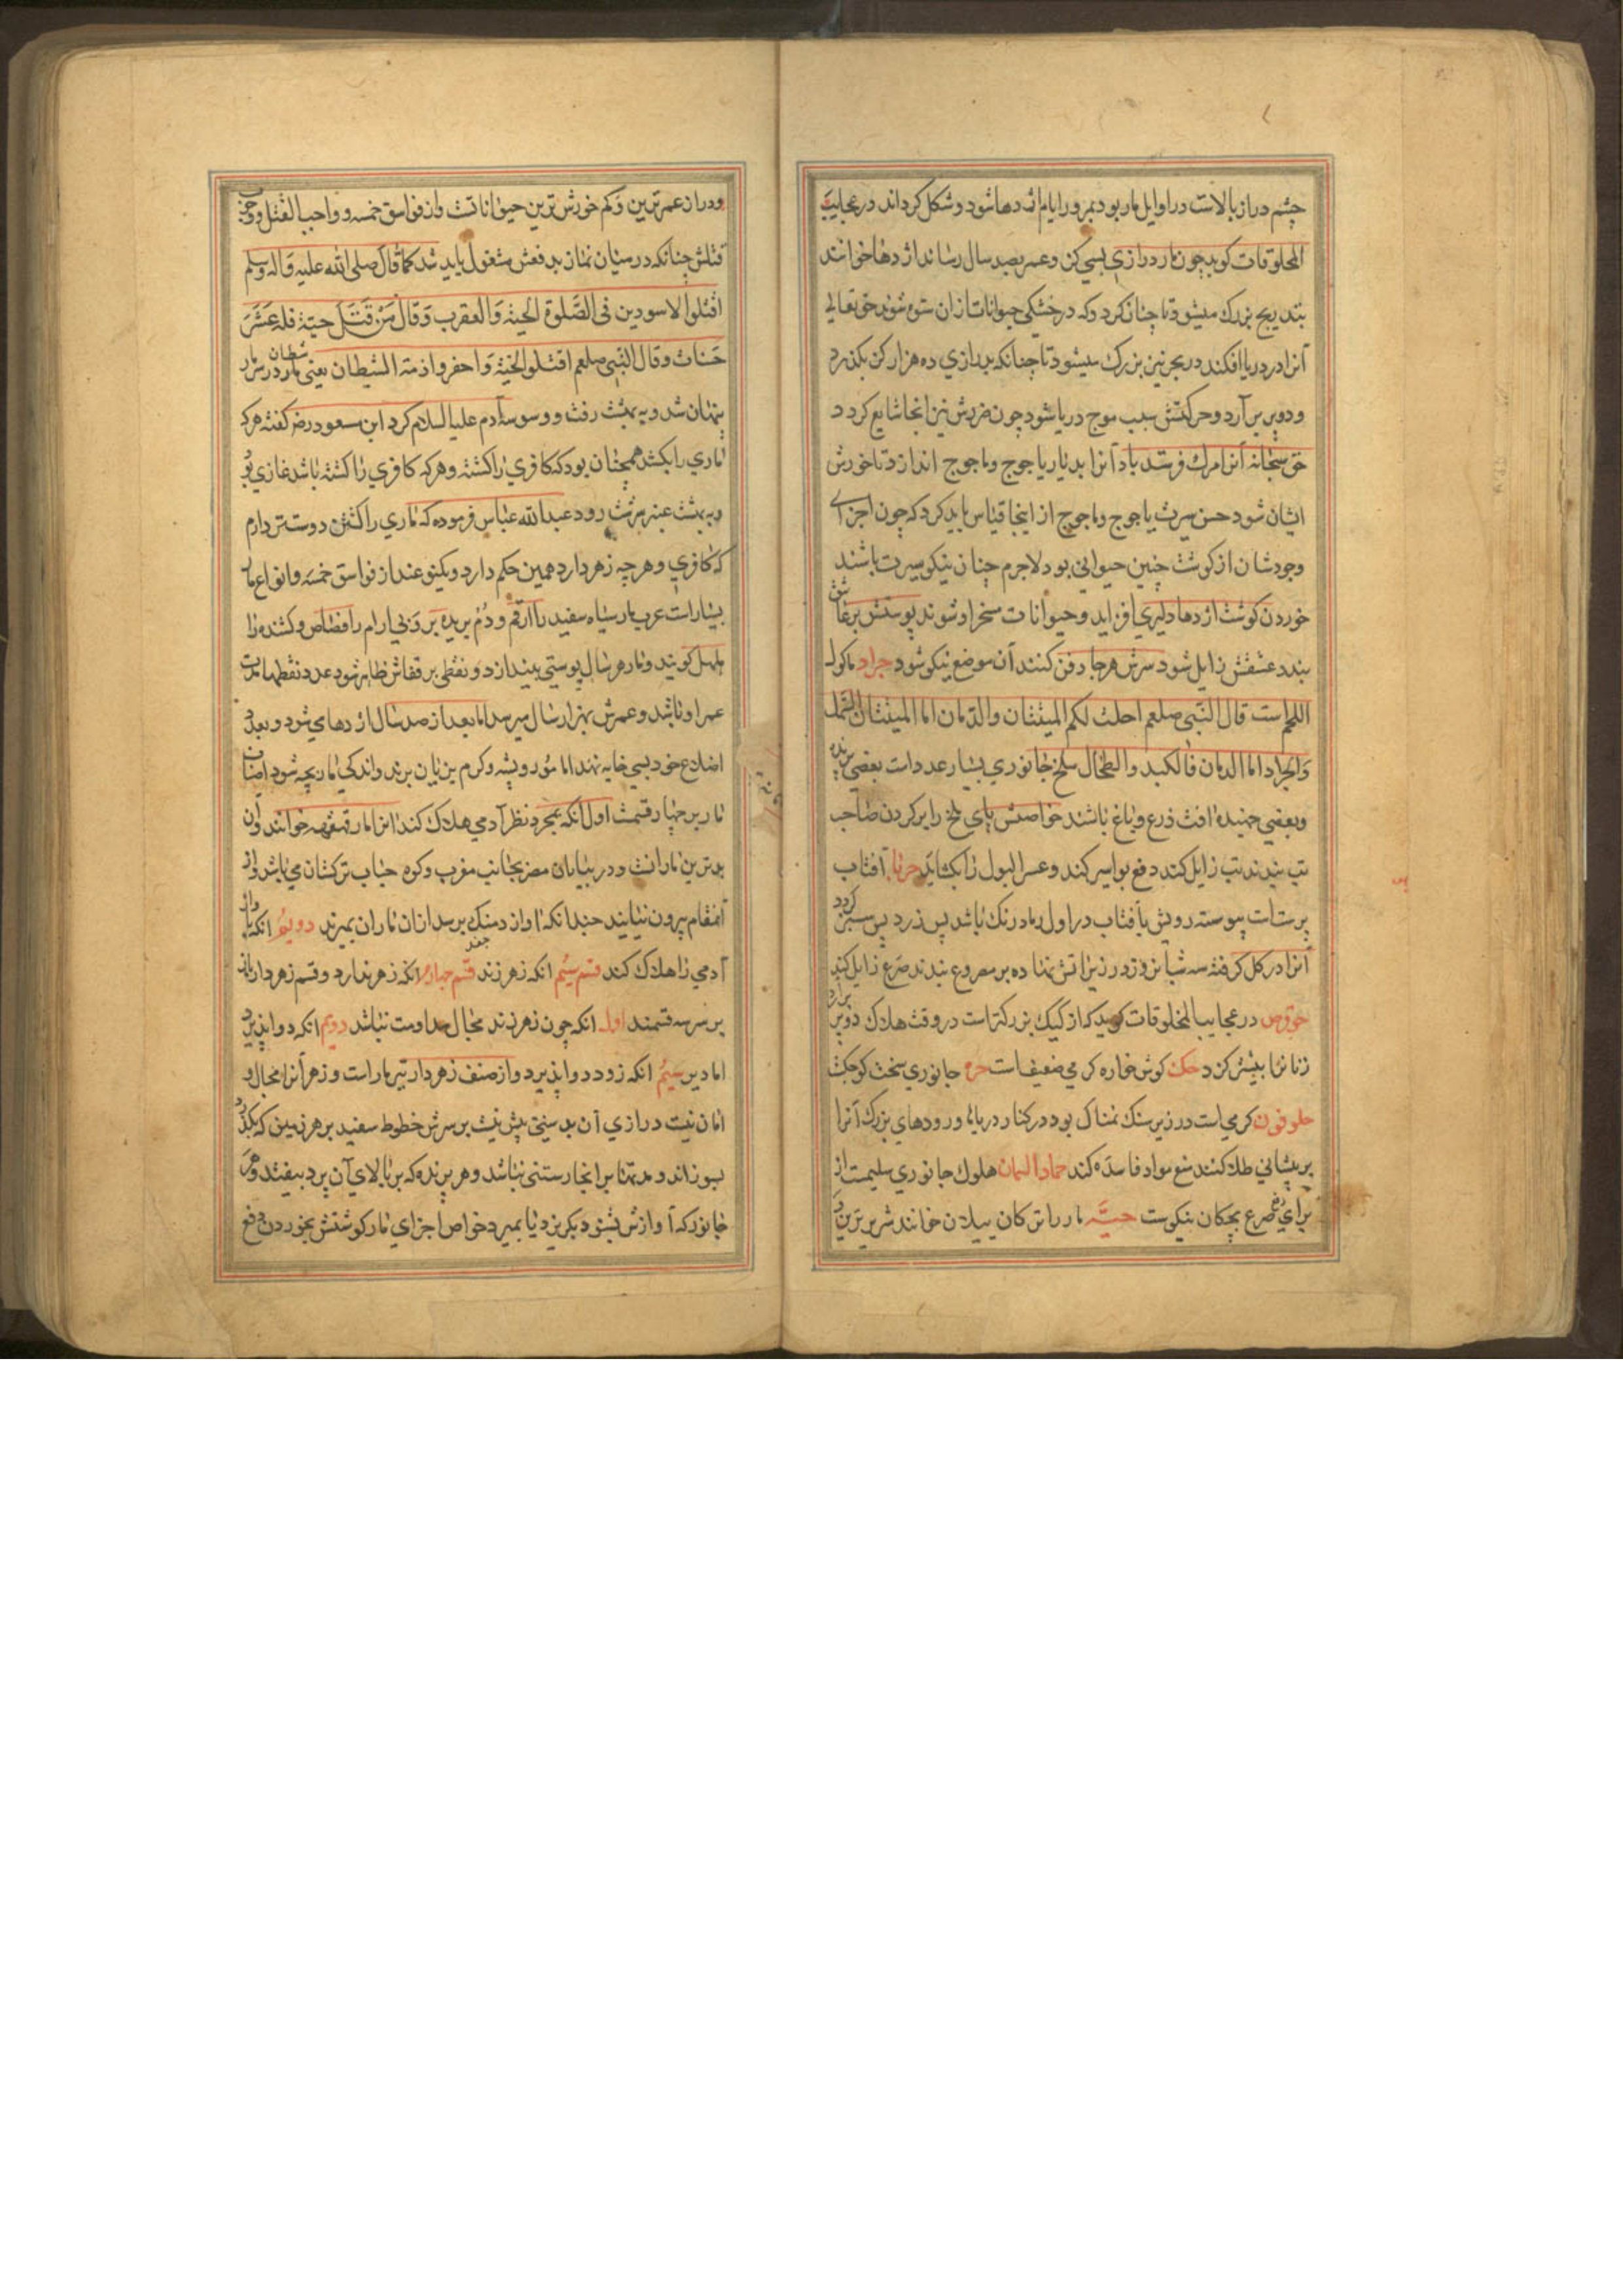 چشم دراز بالاست در اوایل مار بود بمرور ایام اژدها شود و شکل کرداند در عجایب
المخلوقات کوید چون مار درازی بسی کن و عمر بصد سال رساند اژدها خوانند
بتدریج بزرک میشود تا چنان کردد که در خشکی حیوانات از ان ستوه شوند حق تعالی
آنرا در دریا افکند در بحر نیز بزرک میشود تا چنانکه بدرازی ده هزار کز بکذرد
و دو پر بر آرد و حرکتش سبب موج دریا شود چون ضررش نیز انجا شایع کردد
حق سبحانه آنرا مرک فرستد باد آنرا بدیار یاجوج وماجوج اندازد تا خورش
ایشان شود حسن سیرت یاجوج وماجوج از اینجا قیاس باید کرد که چون اجزای
وجودشان از کوشت چنین حیوانی بود لاجرم چنان نیکو سیرت باشند
خوردن کوشت اژدها دلیری افزاید و حیوانات مسخر او شوند پوستش بر عاشق
بندد عشقش زایل شود سرش هرجا دفن کنند آن موضع نیکو شود جراد ماکول
اللحم است قال النبی صلعم احلت لکم المیتتان والدمان اما المیتتان السمک
والجراد اما الدمان فالکبد والطحال ملخ جانوری بسیار عدد است بعضی پرنده
وبعضی جهنده آفت زرع وباغ باشند خواصش پای ملخ را بر کردن صاحب
تب بندند تب زایل کند دفع بواسیر کند وعسر البول را بکشاید حربا آفتاب
پرست است پیوسته رویش بآفتاب در اول رمادرنک باشد پس زرد پس سبز کردد
آنرا در کل کرفته سه شبانروز در زیر آتش نهاده بر مصروع بندند صرع زایل کند
حرقوص در عجایب المخلوقات کوید که از کیک بزرکتر است در وقت هلاک دو پر برآرد
زنانرا بیشتر کزد حکک کوش خاره کرمی ضعیف است حره جانوری سخت کوچک
حلوفون کرمی است در زیر سنک نمناک بود در کنار دریاها و رودهای بزرک آنرا
بر پیشانی طلا کنند منع مواد فاسده کند حمار البان هلوک جانوری سلیمست از
برای دفع صرع بچکان نیکوست حیّه مار را ترکان ییلان خوانند شریرترین
ودراز عمرترین وکم خورش ترین حیواناتست واز فواسق خمسه وواجب القتل ووجوب
قتلش چنانکه در میان نماز بدفعش مشغول باید شد کما قال صلی الله علیه واله وسلم
اقتلوا الاسودین فی الصلوة الحیة والعقرب وقال من قتل حیة فله عشر
حسنات وقال النبی صلعم اقتلوا الحیة واحفروا ذمة الشیطان یعنی شیطان در سر مار
پنهان شد وبه بهشت رفت ووسوسه آدم علیه السلام کرد ابن مسعود رض کفته هرکه
ماری را بکشد همچنان بود که کافری را کشته وهرکه کافری را کشته باشد غازی بود
وبه بهشت عنبر سرشت رود عبدالله عباس فرموده که ماری را کشتن دوستر دارم
که کافری وهرچه زهر دارد همین حکم دارد ویکنوعند از فواسق خمسه وانواع مار
بسیار است عرب مار سیاه سفید را ارقم ودم بریده را افضاض وکشنده را
کویند ومار هر سال پوستی بیندازد ونقطی بر قفاش ظاهر شود عدد نقطها مدت
عمر او باشد وعمرش بهزار سال میرسد اما بعد از صد سال اژدهای شود وبعدد
اضلاع خود بسی خایه نهد اما مور وپشه وکرم زیان برند واندکی مار بچه شود اصناف
مار بر چهار قسمت اول انکه بمجرد نظر آدمی هلاک کند انرا مار قهقهه خوانند وآن
بدترین مارانست ودر بیابان مصر بجانب مغرب وکوه حباب ترکستان می باشد واز
آنمقام بیرون نیایند چندانکه آواز دمنک برسد از ان ماران بمیرند دویم انکه
آدمی را هلاک کند قسم سیم انکه زهر زند قسم چهارم انکه زهر ندارد وقسم زهردار باز
بر سه قسمند اول انکه چون زهر زند مجال مداومت نباشد دویم انکه دوا پذیرد
اما دیر سیم انکه زود دوا پذیرد واز صنف زهردار تیرمار است وزهر آنرا مجال و
امان نیست درازی آن بدستی بیش نیست بر سرش خطوط سفید بر هر زمین که بکذرد
بسوزاند ومدتها بر انجا رستنی نباشد وهر پرنده که بر بالای آن پرد بیفتد وهر
جانور که آوازش شنود بکریزد یا بمیرد خواص اجزای مار کوشتش بخوردن دفع